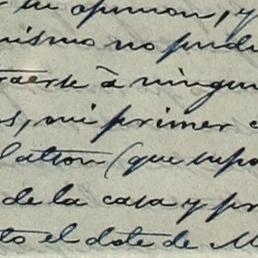 r tu opinion, y
mismo no pud
traerse à ningun
s, mi primer c
latson (que supo
de la casa y pr
to el dote de M